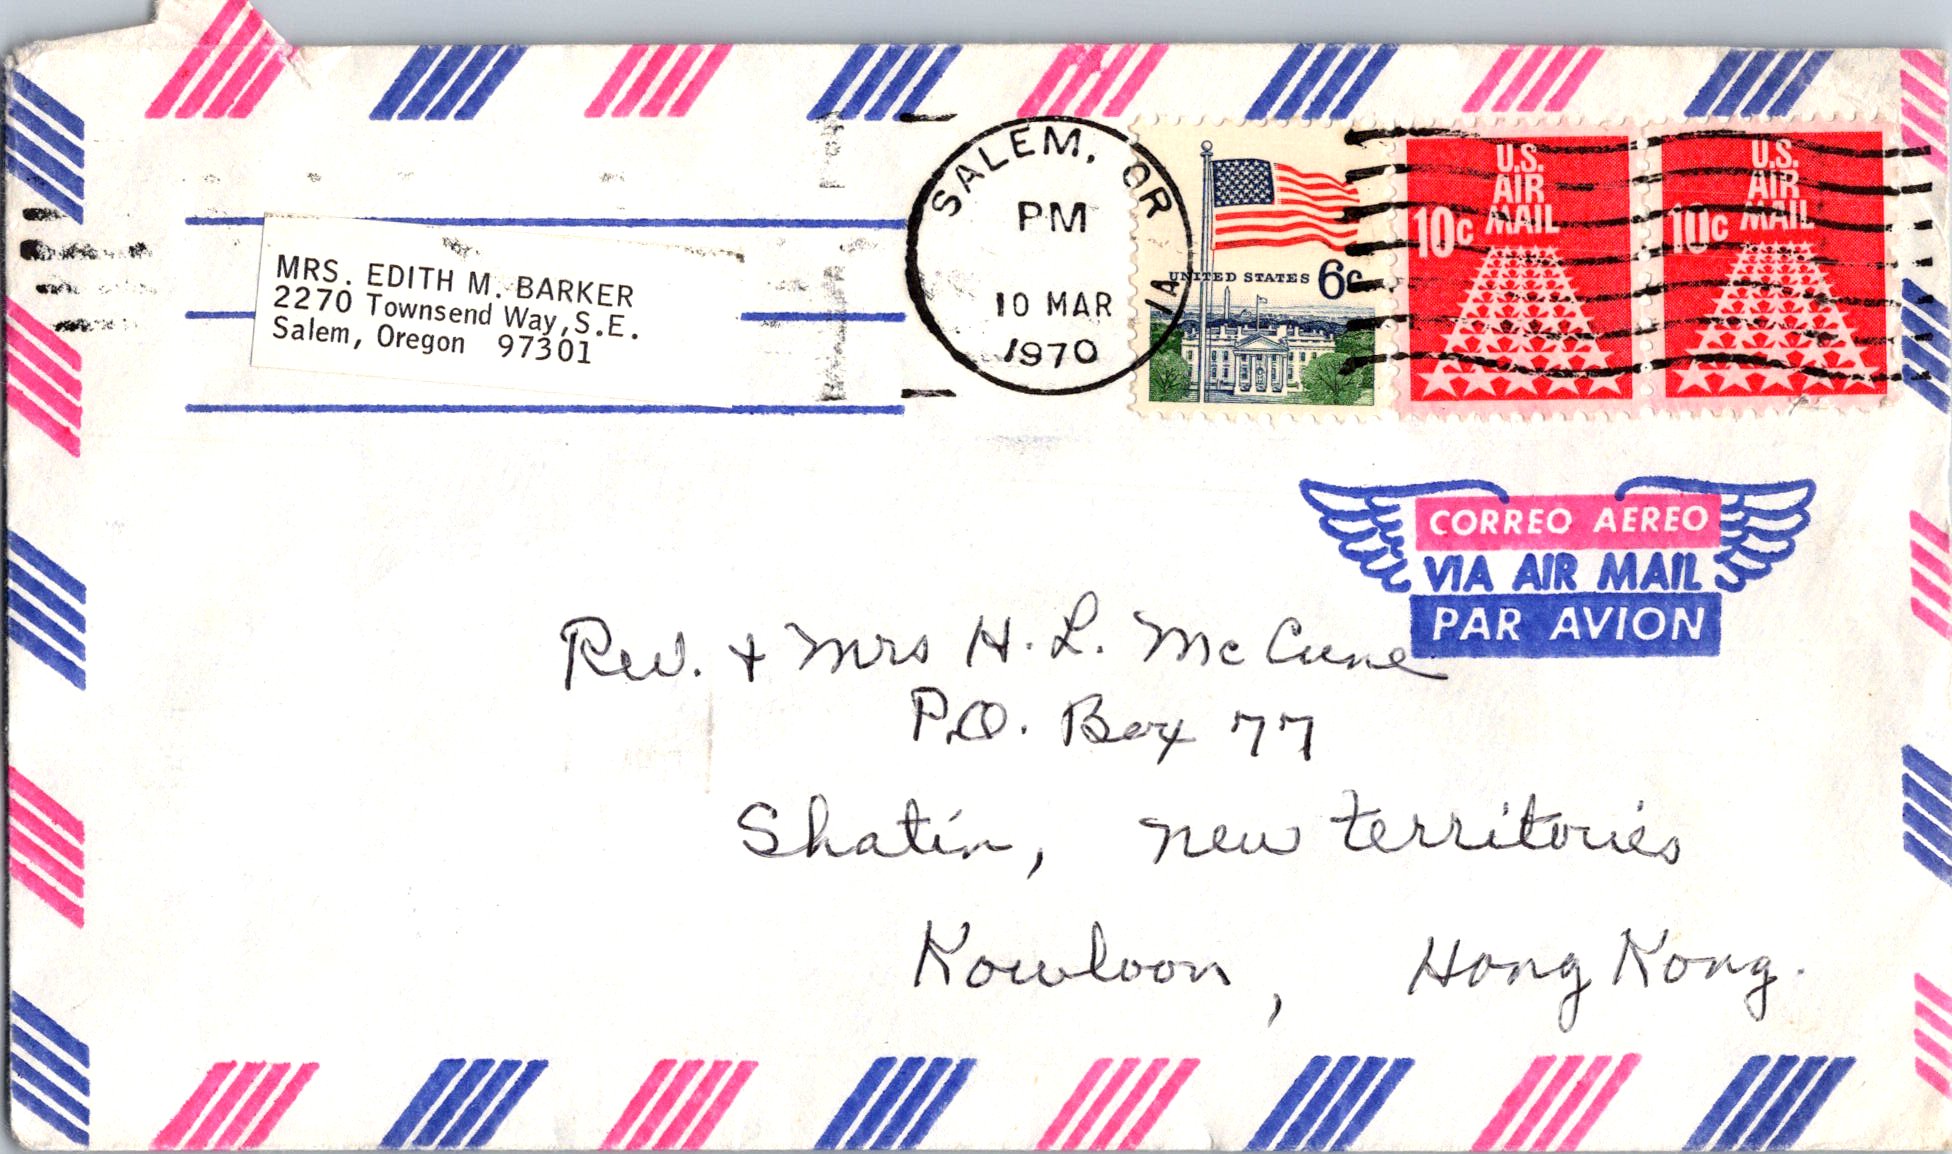 MRS. EDITH M. BARKER
2270 Townsend Way, S.E.
Salem, Oregon 97301
SALEM, OR
PM
10 MAR
1970
1A
UNITED STATES 6c
U.S.
AIR
MAIL
10c
U.S.
AIR
MAIL
10c
CORREO AEREO
VIA AIR MAIL
PAR AVION
Rev. + Mrs H. L. McCune
P.O. Box 77
Shatin, New Territories
Kowloon, Hong Kong.